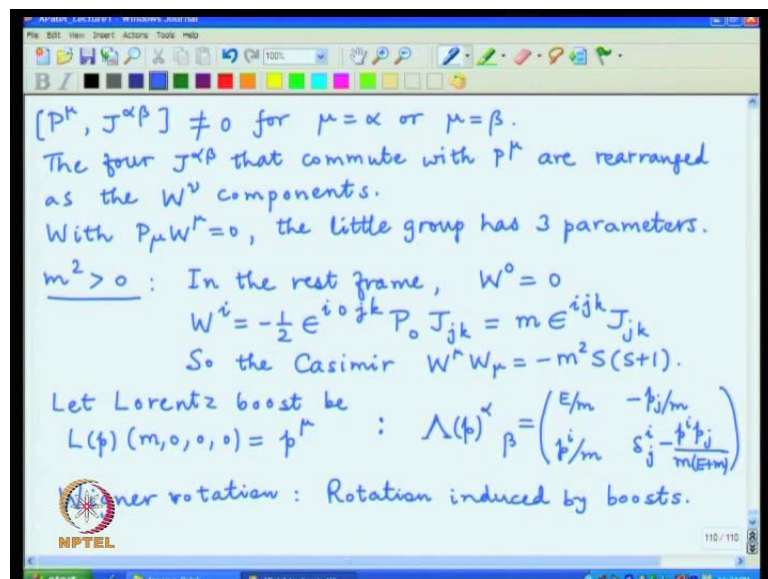 APatel_Lecture1 - Windows Journal
File Edit View Insert Actions Tools Help
100%
B I
[P^μ, J^{αβ}] ≠ 0 for μ = α or μ = β.
The four J^{αβ} that commute with P^μ are rearranged
as the W^ν components.
With P_μ W^μ = 0, the little group has 3 parameters.
m² > 0 : In the rest frame, W⁰ = 0
W^i = -½ ε^{i0jk} P₀ J_{jk} = m ε^{ijk} J_{jk}
So the Casimir W^μ W_μ = -m² S(S+1).
Let Lorentz boost be
L(p) (m,0,0,0) = p^μ : Λ(p)^α_β = ( E/m -p_j/m
p^i/m δ^i_j - p^i p_j / m(E+m) )
Wigner rotation : Rotation induced by boosts.
NPTEL
110 / 110